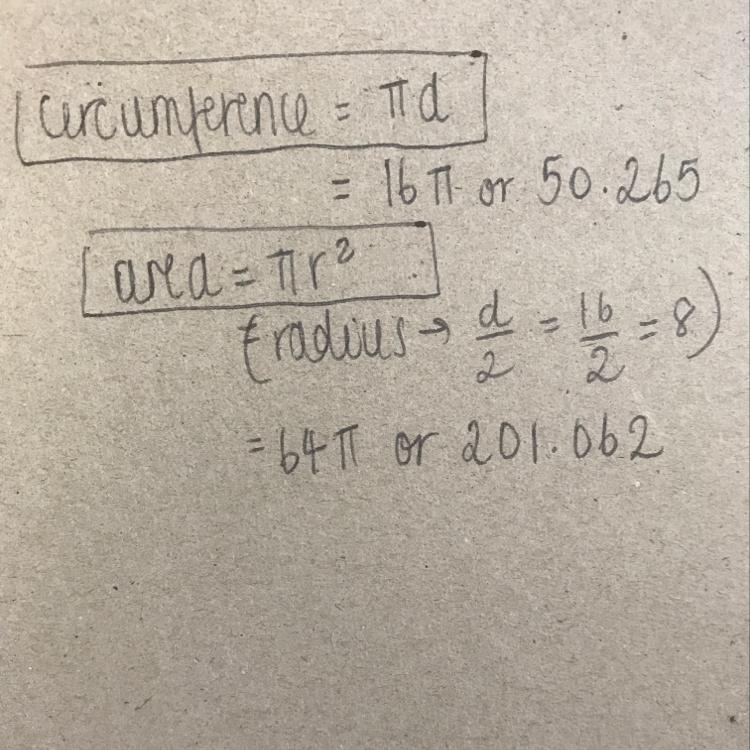 circumference = πd
= 16π or 50.265
area = πr²
(radius → d/2 = 16/2 = 8)
= 64π or 201.062